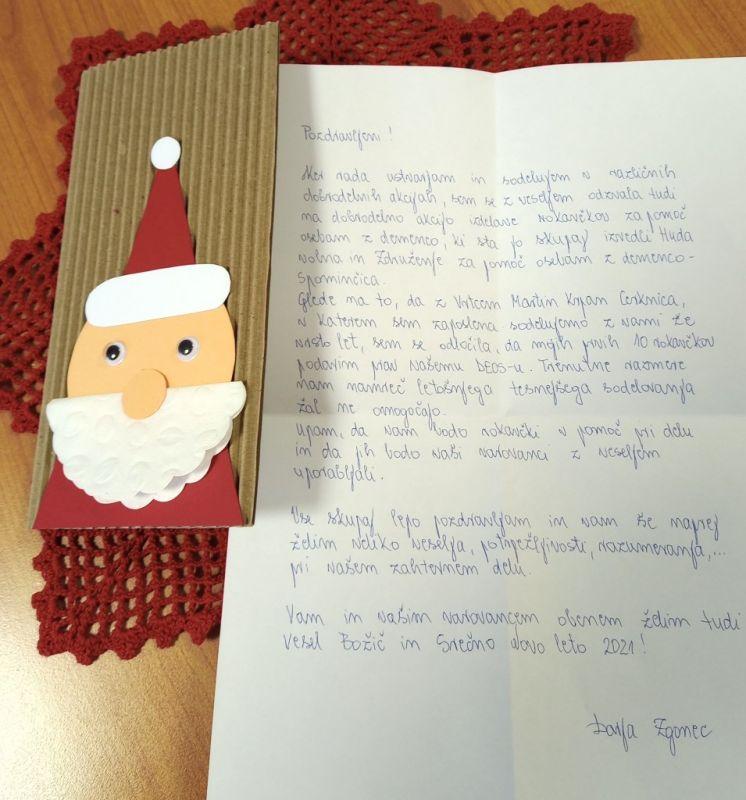 Pozdravljeni!
Ker rada ustvarjam in sodelujem v različnih
dobrodelnih akcijah, sem se z veseljem odzvala tudi
na dobrodelno akcijo izdelave rokavčkov za pomoč
osebam z demenco, ki sta jo skupaj izvedli Huda
volna in Združenje za pomoč osebam z demenco-
Spominčica.
Glede na to, da z Vrtcem Martin Krpan Cerknica,
v katerem sem zaposlena sodelujemo z vami že
vrsto let, sem se odločila, da mojih prvih 10 rokavčkov
podarim prav vašemu DEOS-u. Trenutne razmere
nam namreč letošnjega tesnejšega sodelovanja
žal ne omogočajo.
Upam, da vam bodo rokavčki v pomoč pri delu
in da jih bodo vaši varovanci z veseljem
uporabljali.
Vse skupaj lepo pozdravljam in vam še naprej
želim veliko veselja, potrpežljivosti, razumevanja,...
pri vašem zahtevnem delu.
Vam in vašim varovancem obenem želim tudi
Vesel Božič in Srečno Novo leto 2021!
Darja Zgonec